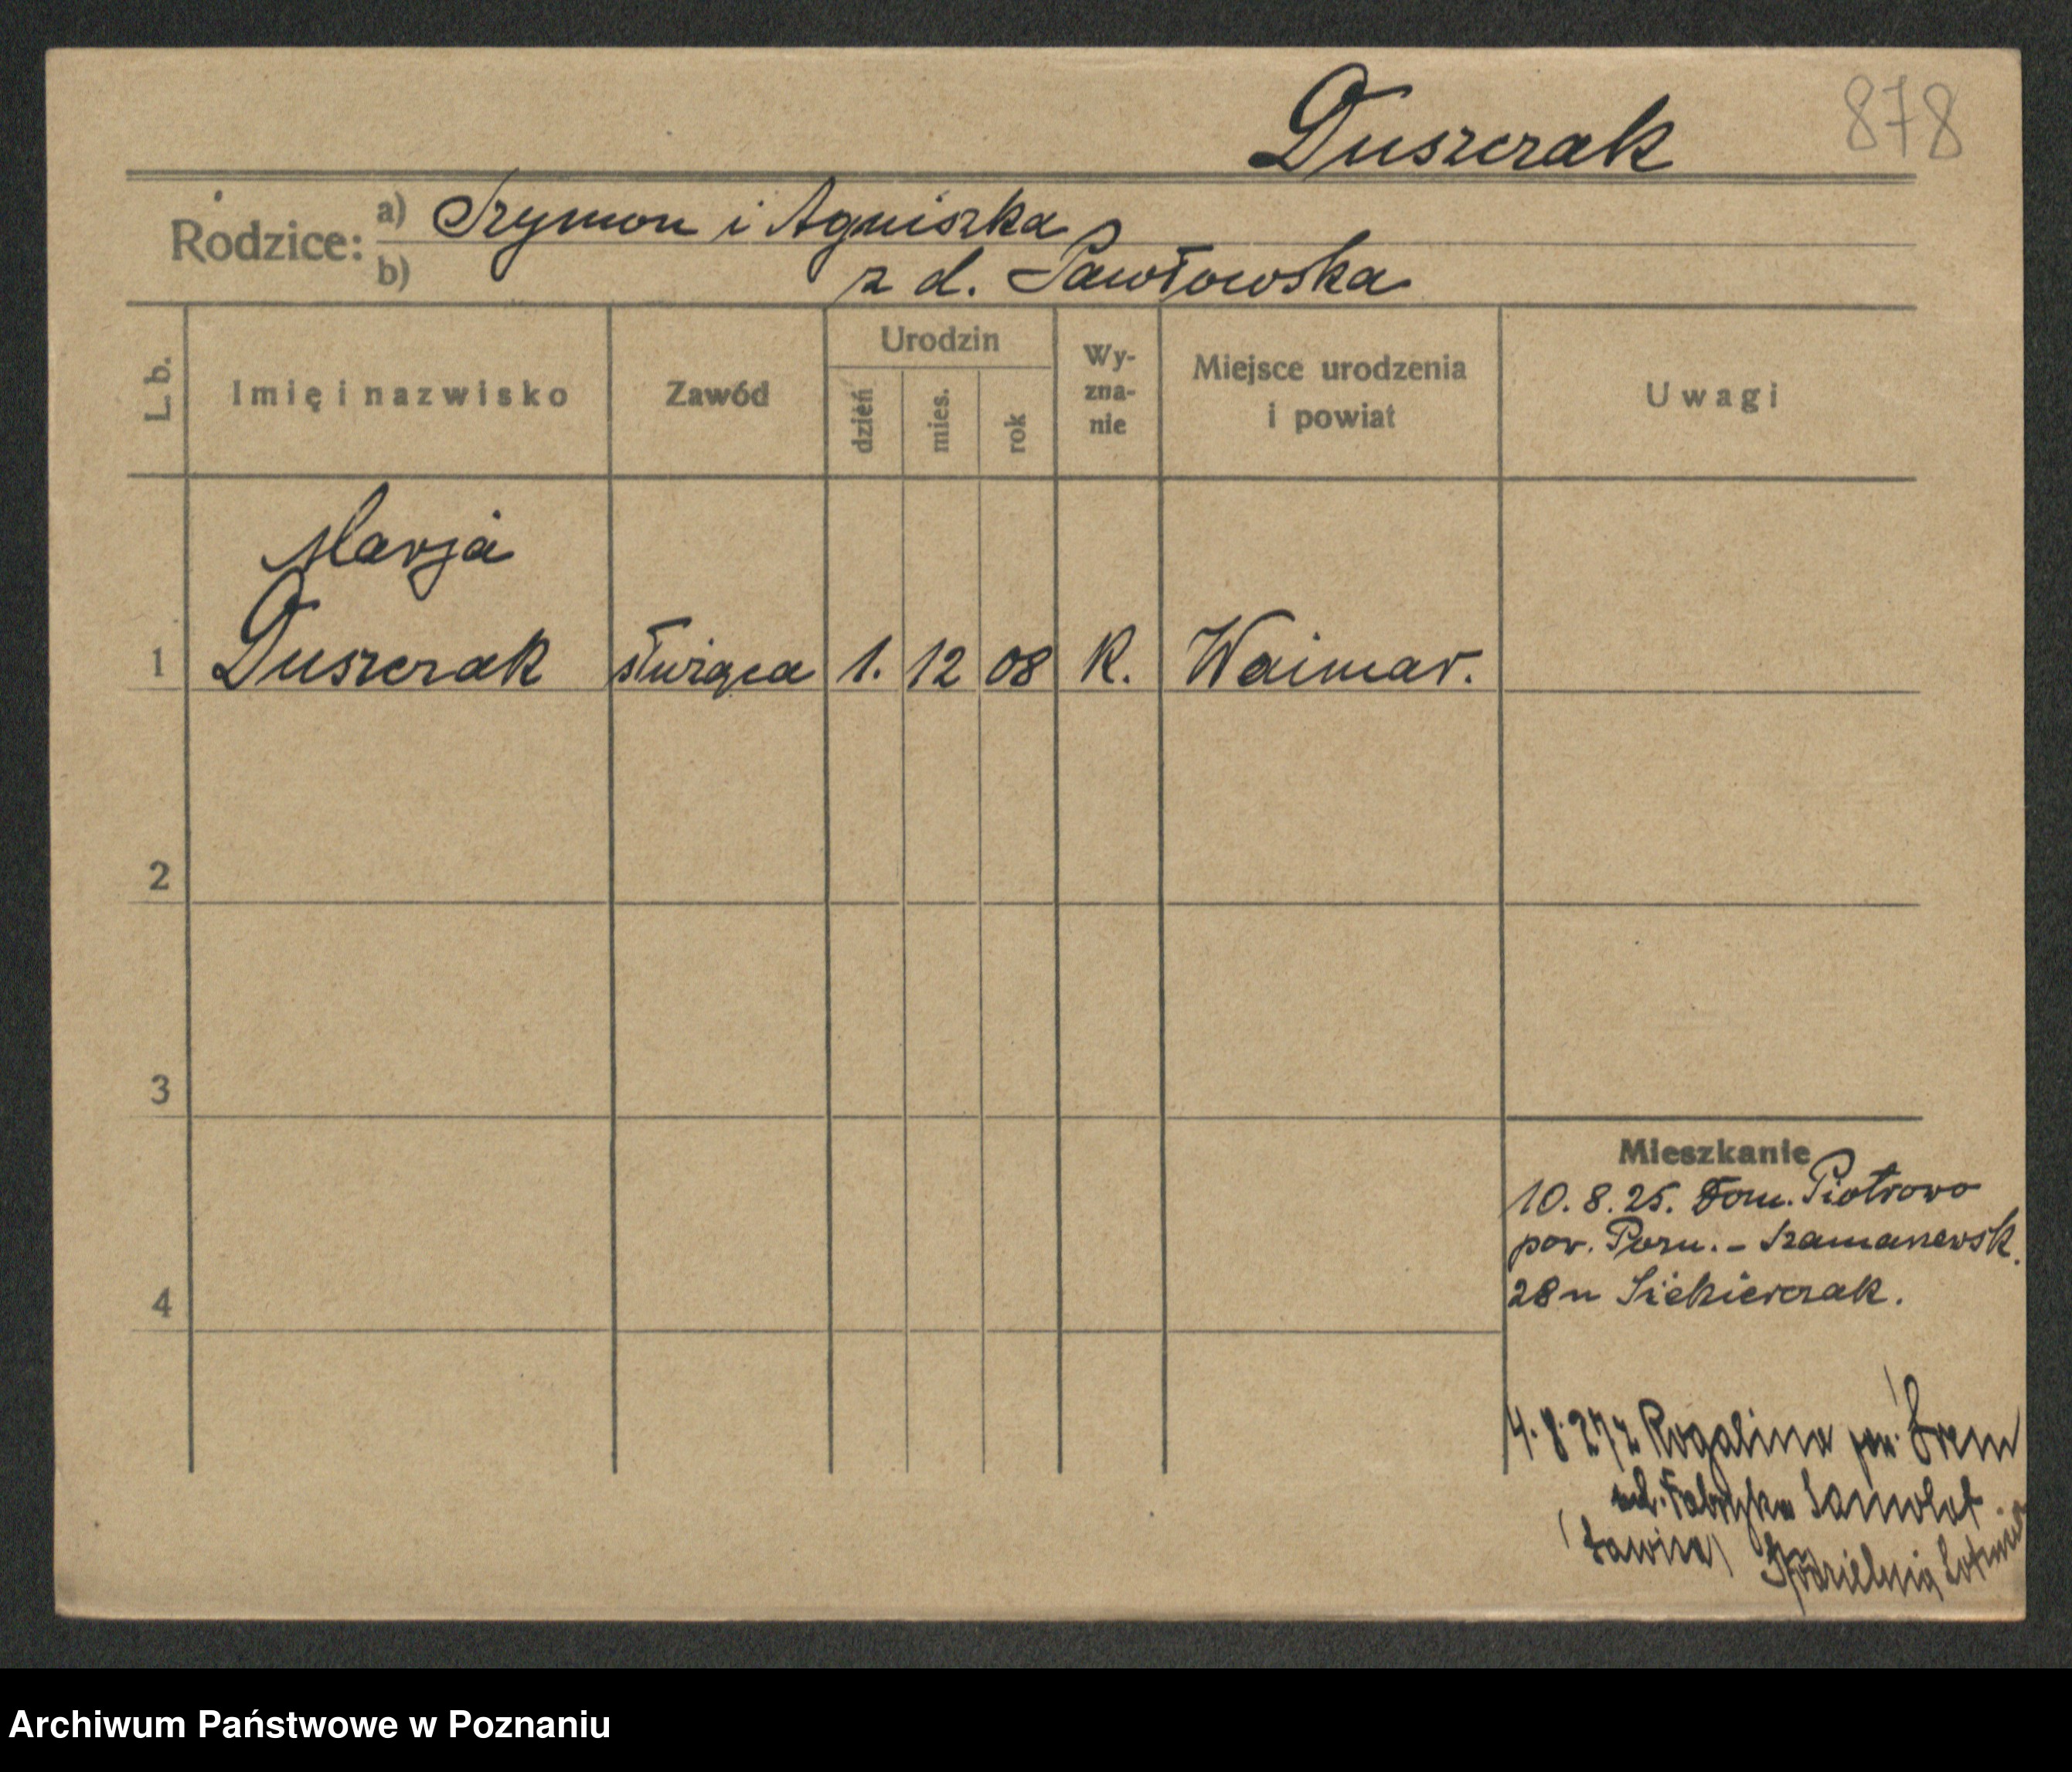 Duszczak
878
Rodzice:
a) Szymon i Agniszka
b) z d. Pawłowska
L. b.
Imię i nazwisko
Zawód
Urodzin
dzień
mies.
rok
Wy-
zna-
nie
Miejsce urodzenia
i powiat
Uwagi
Marja
1 Duszczak służąca 1. 12 08 K. Waimar.
2
3
4
Mieszkanie
10. 8. 25. Dom. Piotrowo
pow. Pozn. -
28 u Siekierczak.
4. 8. 27 z Rogalina pow. Śrem
ul. Fabryka Samolot
(Ławica) Spółdzielnia Lotnicza
Archiwum Państwowe w Poznaniu